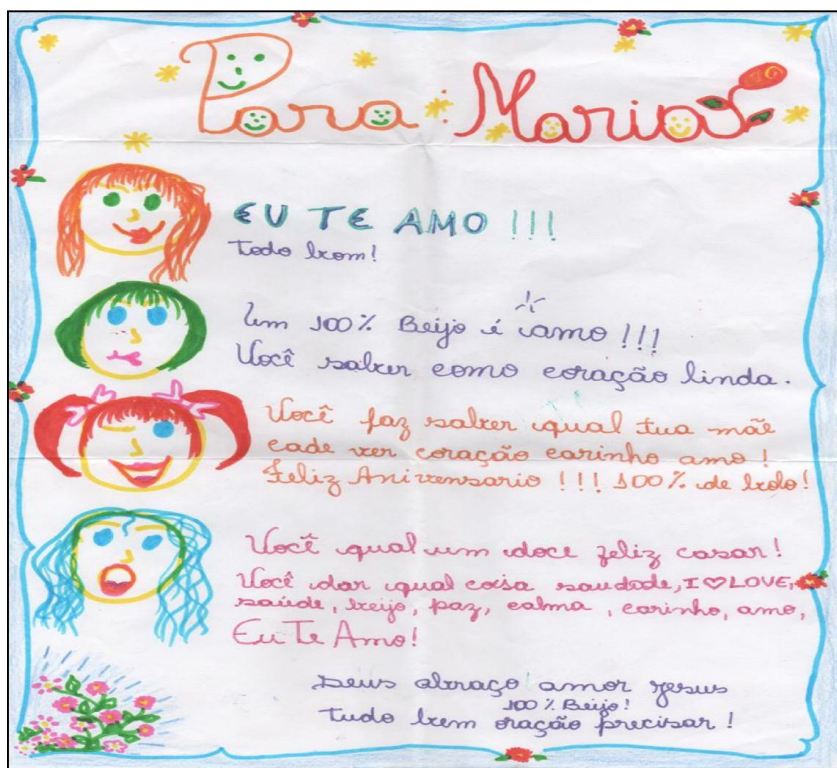 Para: Maria
EU TE AMO!!!
Todo bom!
Um 100% Beijo é amo!!!
Você saber como coração linda.
Você faz saber qual tua mãe
cade ver coração carinho amo!
Feliz Aniversario!!! 100% de bolo!
Você qual um doce feliz casar!
Você dar qual coisa saudade, I ♡ LOVE,
saúde, beijo, paz, calma, carinho, amo,
Eu Te Amo!
Deus abraço amor Jesus
100% Beijo!
Tudo bem oração precisar!